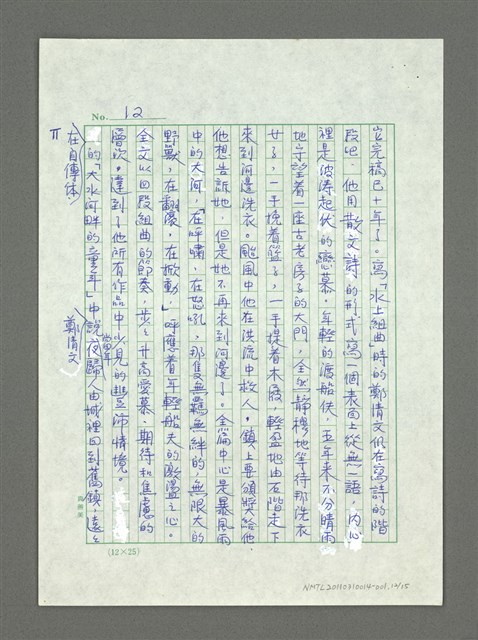 No. 12
它完稿已十年了。寫「水上組曲」時的鄭清文仍在寫詩的階
段吧，他用散文詩的形式寫一個表面上從無一語，內心
裡是波濤起伏的戀慕，年輕的渡船伕，五年來不分晴雨
地守望着一座古老房子的大門，全然靜穆地等待那洗衣
女子，一手挽着籃子，一手提着木屐，輕盈地由石階走下
來到河邊洗衣。颱風中他在洪流中救人，鎮上要頒獎給他，
他想告訴她，但是她不再來到河邊了。全篇中心是暴風雨
中的大河，「在呼嘯，在怒吼，那隻無羈無絆的，無限大的
野獸，在翻滾，在掀動，」呼應着年輕船夫的激盪之心。
全文以四段組曲的節奏，步步升高愛慕、期待和焦慮的
層次，達到了他所有作品中少見的豐沛情境。
在自傳体的「大水河畔的童年」中鄭清文說，當年夜歸人由城裡回到舊鎮，遠遠
(12×25)
NMTL20110310014-001.12/15